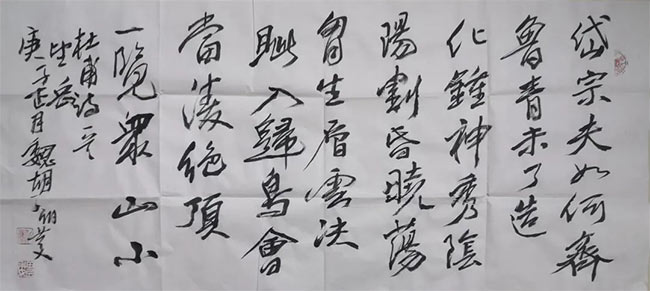 岱宗夫如何齊
魯青未了造
化鍾神秀陰
陽割昏曉蕩
胷生層雲決
眦入歸鳥會
當淩絕頂
一覽眾山小
杜甫詩一首
望岳
庚子正月魏胡